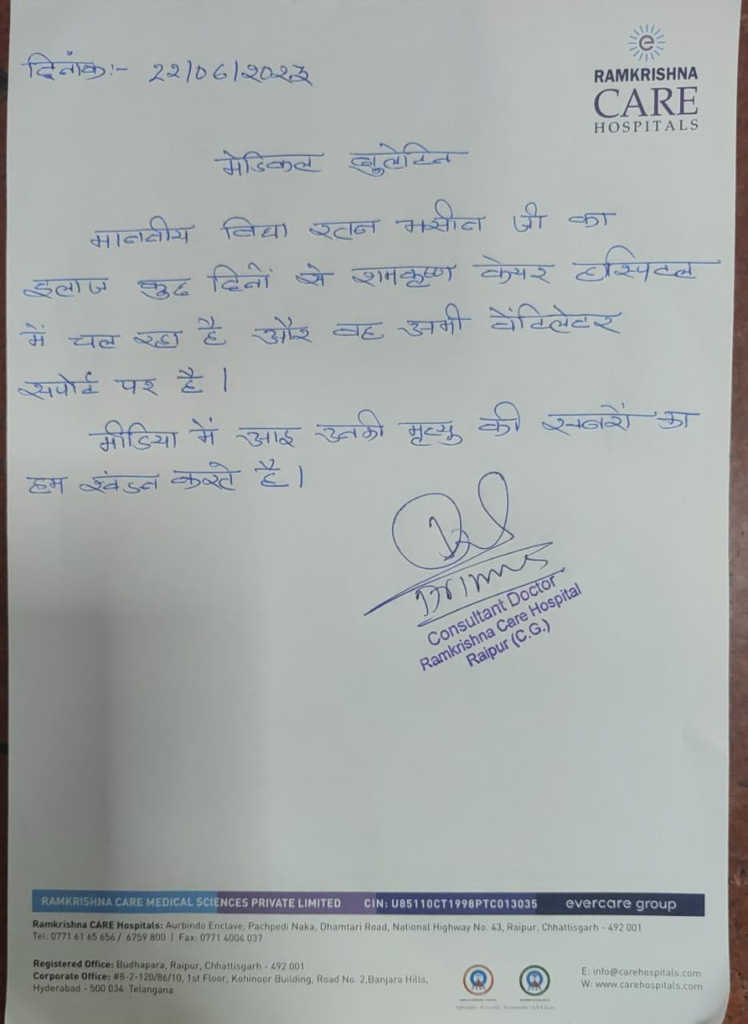 दिनांक:- 22/06/2023
RAMKRISHNA
CARE
HOSPITALS
मेडिकल बुलेटिन
माननीय विद्या रतन भसीन जी का
इलाज कुछ दिनों से रामकृष्ण केयर हास्पिटल
में चल रहा है और वह अभी वेंटिलेटर
सपोर्ट पर है।
मीडिया में आइ उनकी मृत्यु की खबरों का
हम खंडन करते है।
Consultant Doctor
Ramkrishna Care Hospital
Raipur (C.G.)
RAMKRISHNA CARE MEDICAL SCIENCES PRIVATE LIMITED CIN: U85110CT1998PTC013035 evercare group
Ramkrishna CARE Hospitals: Aurbindo Enclave, Pachpedi Naka, Dhamtari Road, National Highway No. 43, Raipur, Chhattisgarh - 492 001
Tel: 0771 61 65 656 / 6759 800 | Fax: 0771 4004 037
Registered Office: Budhapara, Raipur, Chhattisgarh - 492 001
Corporate Office: #8-2-120/86/10, 1st Floor, Kohinoor Building, Road No. 2,Banjara Hills,
Hyderabad - 500 034 Telangana
E: info@carehospitals.com
W: www.carehospitals.com